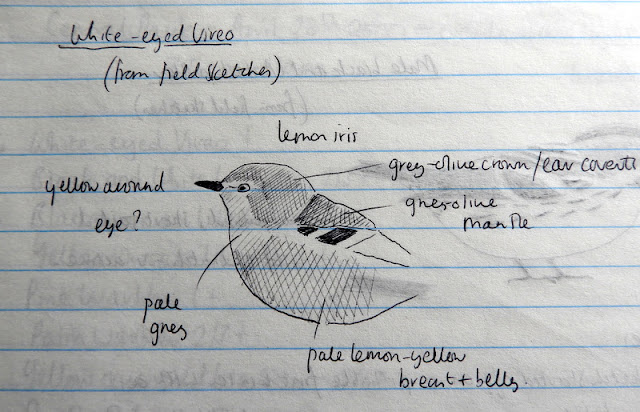 White-eyed Vireo
(from field sketches)
lemon iris
grey-olive crown/ear coverts
yellow around
eye?
grey-olive
mantle
pale
grey
pale lemon-yellow
breast + belly.